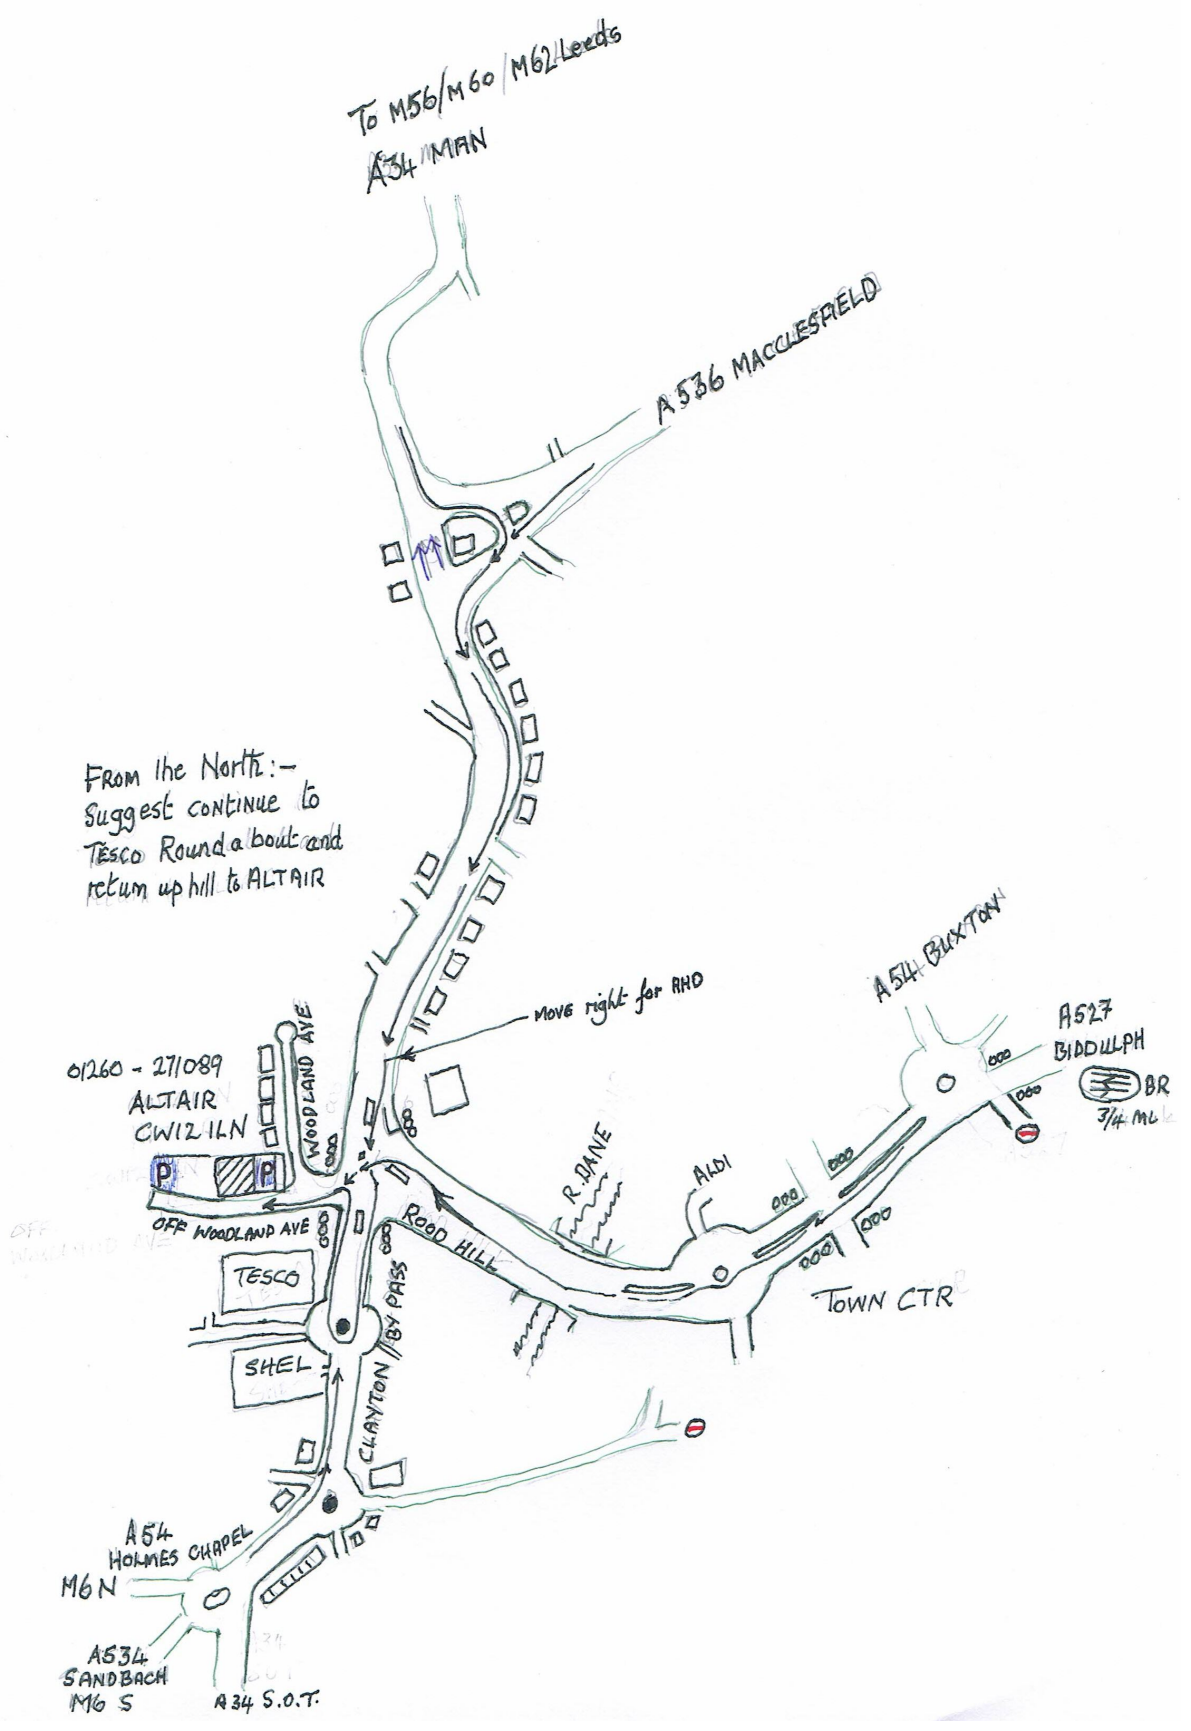 To M56/M60/M62 Leeds
A34 MAN
A536 MACCLESFIELD
FROM the North:-
Suggest continue to
TESCO Roundabout and
return up hill to ALTAIR
A54 BUXTON
MOVE right for AHD
A527
BIDDULPH
BR
3/4 ML
01260 - 271089
ALTAIR
CW12 1LN
WOODLAND AVE
P
P
OFF WOODLAND AVE
R. DANE
ALDI
ROOD HILL
TOWN CTR
TESCO
SHEL
CLAYTON BY PASS
A54
HOLMES CHAPEL
M6 N
A534
SANDBACH
M6 S
A34 S.O.T.